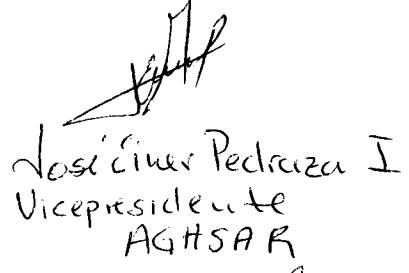 José Ciner Pedraza I
Vicepresidente
AGHSAR